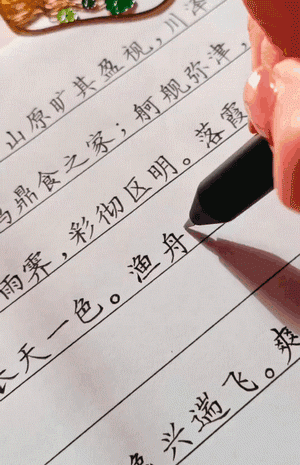 山原旷其盈视，川泽
鸣鼎食之家；舸舰弥津，
雨霁，彩彻区明。落霞
长天一色。渔舟
兴遄飞。爽